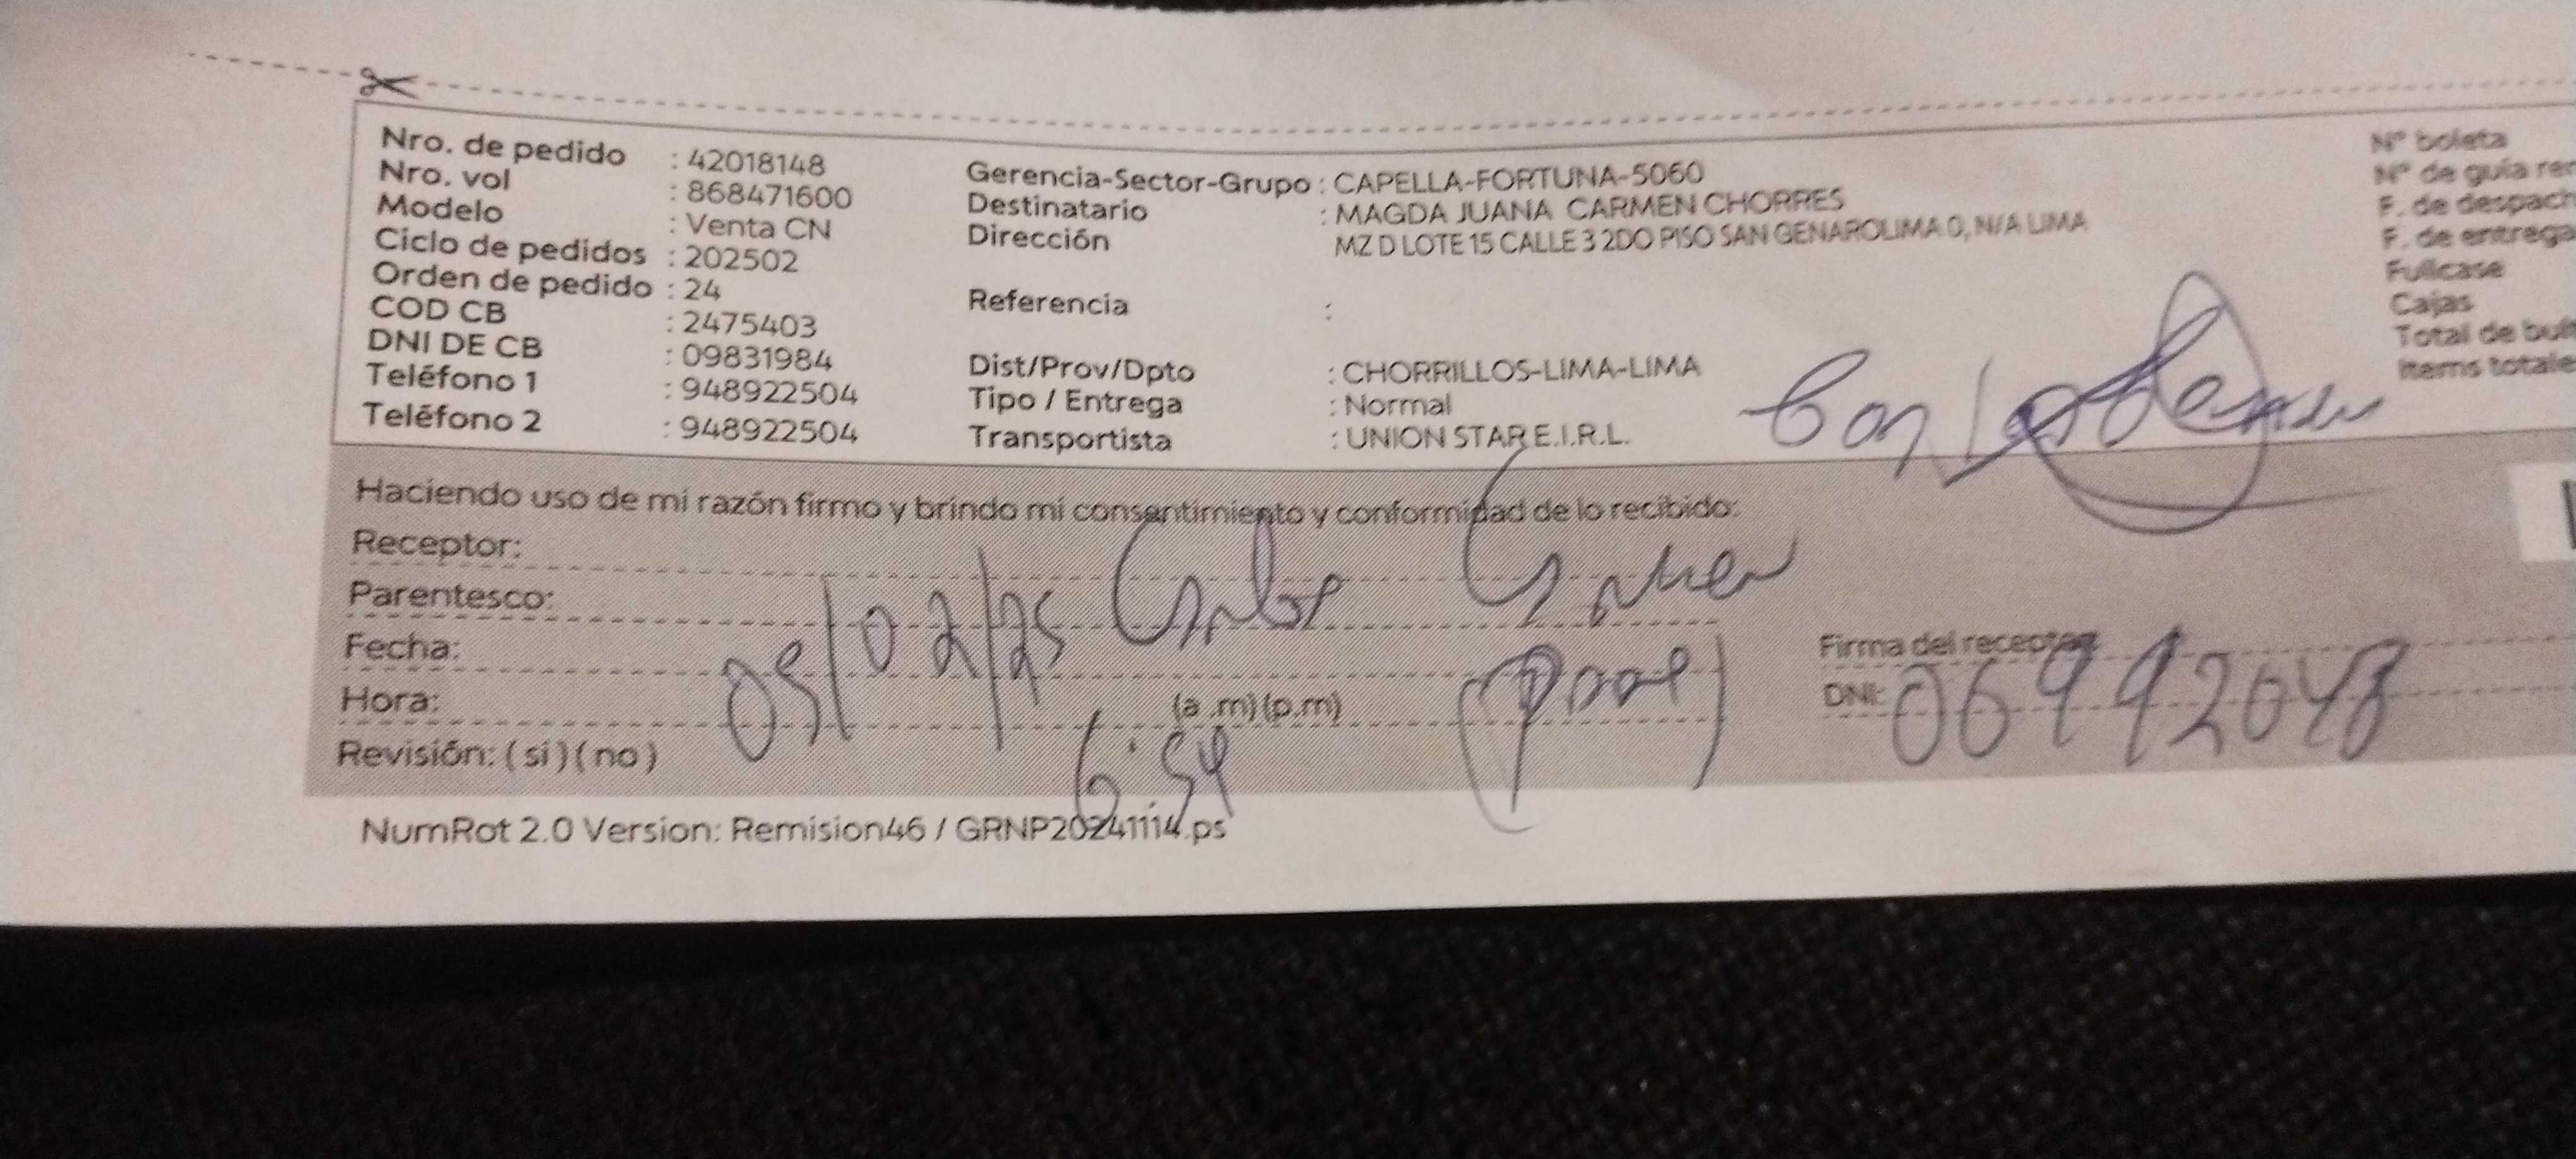 Nro. de pedido : 42018148
Nro. vol : 868471600
Modelo : Venta CN
Ciclo de pedidos : 202502
Orden de pedido : 24
COD CB : 2475403
DNI DE CB : 09831984
Teléfono 1 : 948922504
Teléfono 2 : 948922504
Gerencia-Sector-Grupo : CAPELLA-FORTUNA-5060
Destinatario : MAGDA JUANA CARMEN CHORRES
Dirección MZ D LOTE 15 CALLE 3 2DO PISO SAN GENAROLIMA 0, N/A LIMA
Referencia :
Dist/Prov/Dpto : CHORRILLOS-LIMA-LIMA
Tipo / Entrega : Normal
Transportista : UNION STAR E.I.R.L.
N° boleta
N° de guía rem
F. de despach
F. de entrega
Fullcase
Cajas
Total de bult
Items totale
Haciendo uso de mi razón firmo y brindo mi consentimiento y conformidad de lo recibido:
Receptor:
Parentesco:
Carlos
Fecha: 05/02/25
Hora: (a .m)(p.m)
6:54
Revisión: (si)(no)
Firma del receptor:
DNI: 06992048
NumRot 2.0 Version: Remision46 / GRNP20241114.ps